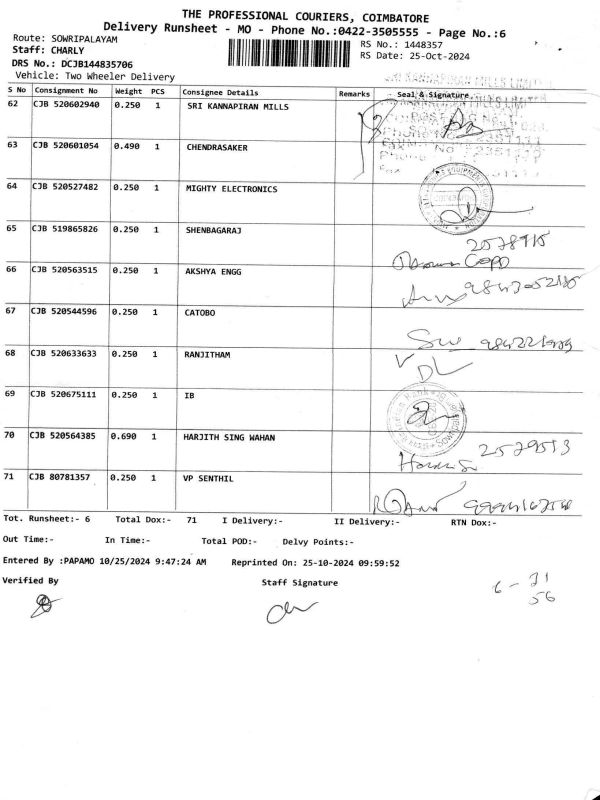 THE PROFESSIONAL COURIERS, COIMBATORE
Delivery Runsheet - MO - Phone No.:0422-3505555 - Page No.:6
Route: SOWRIPALAYAM
RS No.: 1448357
Staff: CHARLY
RS Date: 25-Oct-2024
DRS No.: DCJB144835706
Vehicle: Two Wheeler Delivery
S No Consignment No Weight PCS Consignee Details Remarks Seal & Signature
62 CJB 520602940 0.250 1 SRI KANNAPIRAN MILLS
63 CJB 520601054 0.490 1 CHENDRASAKER
64 CJB 520527482 0.250 1 MIGHTY ELECTRONICS
65 CJB 519865826 0.250 1 SHENBAGARAJ
66 CJB 520563515 0.250 1 AKSHYA ENGG
67 CJB 520544596 0.250 1 CATOBO
68 CJB 520633633 0.250 1 RANJITHAM
69 CJB 520675111 0.250 1 IB
70 CJB 520564385 0.690 1 HARJITH SING WAHAN
71 CJB 80781357 0.250 1 VP SENTHIL
Tot. Runsheet:- 6 Total Dox:- 71 I Delivery:- II Delivery:- RTN Dox:-
Out Time:- In Time:- Total POD:- Delvy Points:-
Entered By :PAPAMO 10/25/2024 9:47:24 AM Reprinted On: 25-10-2024 09:59:52
Verified By Staff Signature